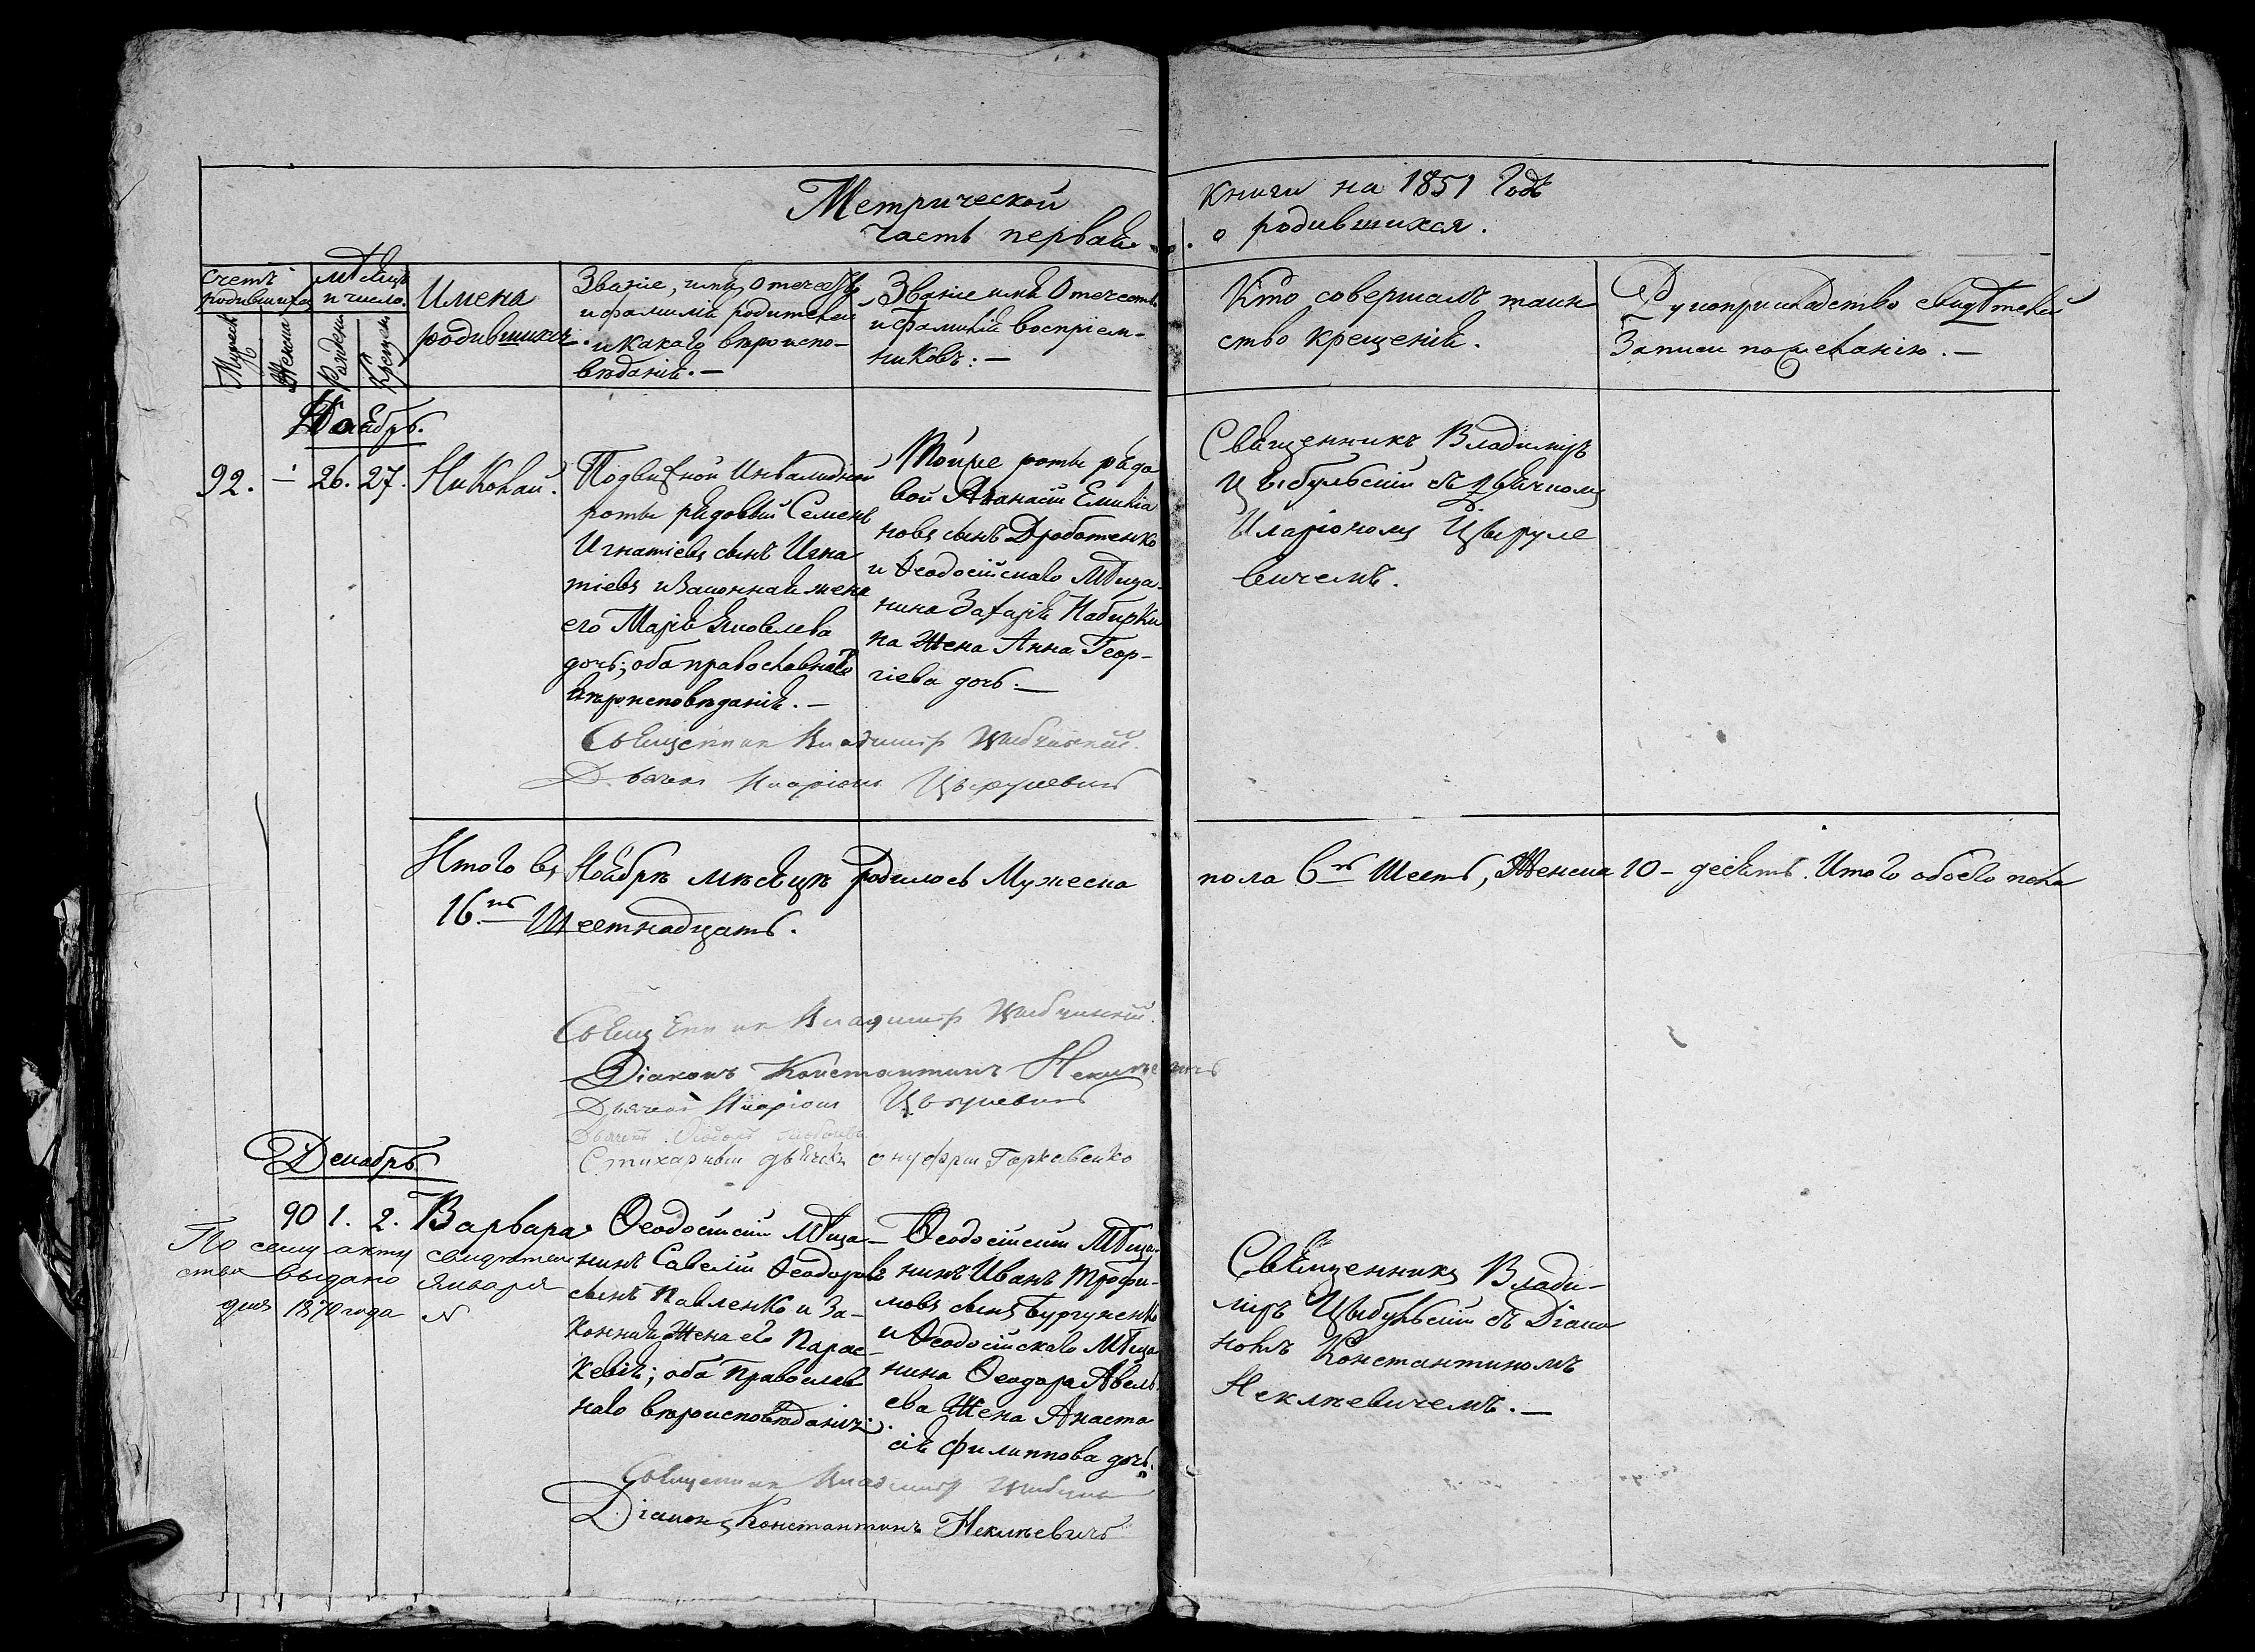 Метрической
часть первая.
книги на 1851 Годъ
о родившихся.
Счетъ
родившихся
Мужеск
Женска
мѣсяцъ
и число.
Рожденія
Крещен
Имена
родившихся.
Званіе, имя, Отечество
и фамилія родителей
и какаго вѣроиспо-
вѣданія.—
Званіе имя Отечество
и фамилія воспріем-
никовъ:—
Кто совершалъ таин
ство крещенія.
Рукоприкладство свидѣтелей
Записи по желанію.—
Ноябрь.
92. — 26. 27. Николай.
Подвижной Инвалидной
роты рядовый Семенъ
Игнатіевъ сынъ Игна
тіевъ и Законная жена
его Марія Яковлева
дочь; оба православнаго
вѣроисповѣданія.—
Тойже роты рядо
вой Аѳанасій Емилiа
новъ сынъ Дроботенко
и Ѳеодосійскаго Мѣща
нина Захарія Набирки
на Жена Анна Геор-
гіева дочь.—
Священникъ Владиміръ
Цыбульскій съ дьячкомъ
Иларіономъ Цыруле
вичемъ.
Священникъ Владиміръ Цыбульскій.
Дьячекъ Иларіонъ Цырулевичъ
Итого въ Ноябрѣ мѣсяцѣ родилось Мужеска
пола 6ть Шесть, Женска 10 – десять. Итого обоего пола
16.ть Шестнадцать.
Священникъ Владиміръ Цыбульскій.
Діаконъ Константинъ Неклѣевичъ
Дьячекъ Иларіонъ Цырулевичъ
Дьячекъ
Стихарный дьячекъ Онуфрій Горкавенко
Декабрь
90 1. 2. Варвара
По сему акту свидѣтель
ство выдано Января
дня 1870 года N
Ѳеодосійскій Мѣща-
нинъ Савелій Ѳеодоровъ
сынъ Павленко и За-
конная Жена его Парас-
кевія; оба Православ
наго вѣроисповѣданія:
Ѳеодосійскій Мѣща-
нинъ Иванъ Трофи-
мовъ сынъ Бургуненко
и Ѳеодосійскаго Мѣща
нина Ѳеодора Авель
ева Жена Анаста
сія Филиппова дочь.
Священникъ Влади-
міръ Цыбульскій съ Діако
номъ Константиномъ
Неклѣевичемъ.—
Священникъ Владиміръ Цыбульскій
Діаконъ Константинъ Неклѣевичъ